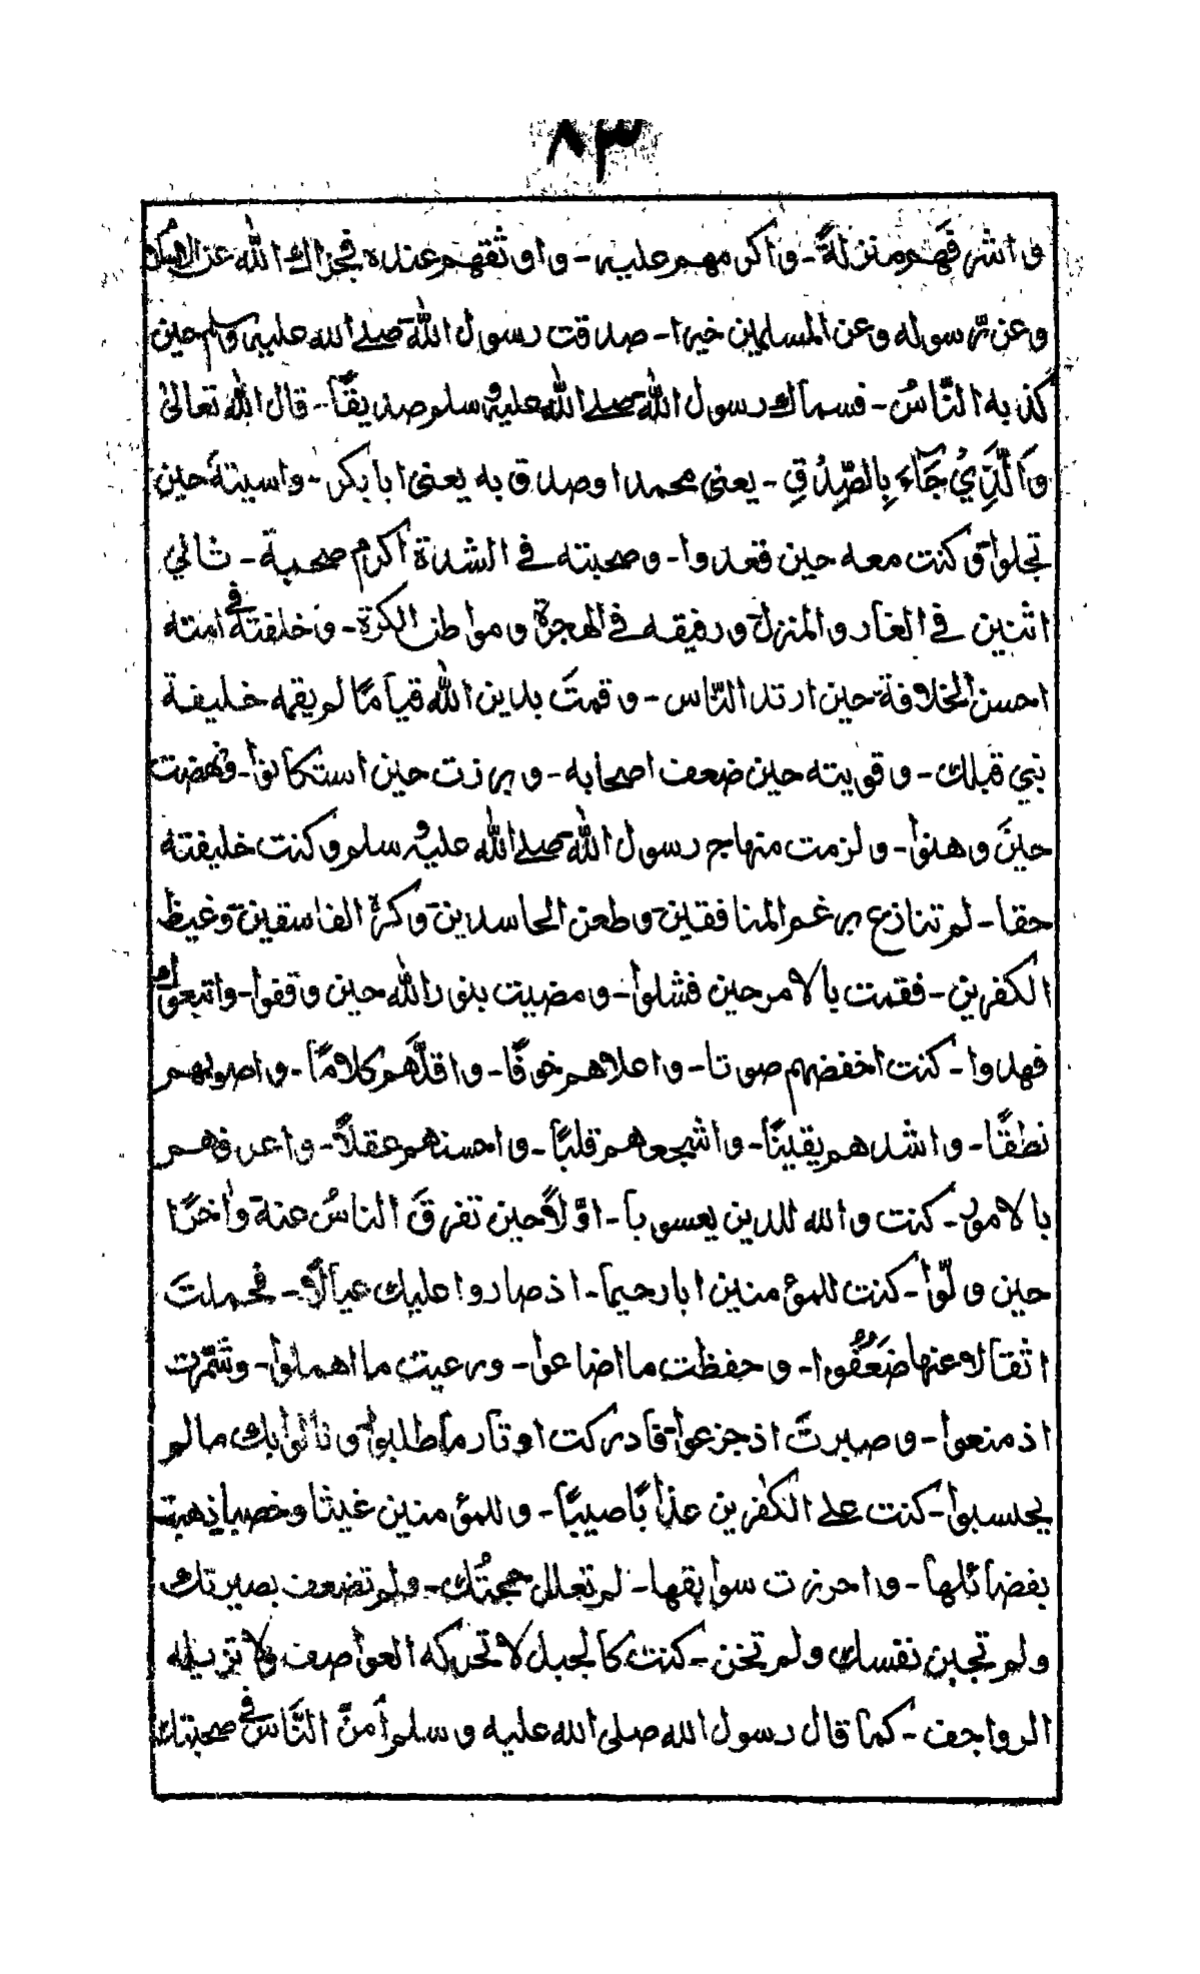 ٨٣
واشرفَهم منزلةً۔ واكرمهم عليه۔ واوثقهم عنده فجزاك الله عن الاسلام
وعن رسوله وعن المسلمين خيرا۔ صدقت رسول الله صلے الله عليه وسلم حين
كذبه النّاسُ۔ فسماك رسول الله صلے الله عليه وسلم صديقًا۔ قال الله تعالىٰ
وَالَّذِيْ جَآءَ بِالصِّدْقِ۔ يعنى محمدا وصدق به يعنى ابا بكر۔ واسيتهَ حين
تخلوا وكنت معه حين قعدوا۔ وصحبته فے الشدة اكرم صحبة۔ ثاني
اثنين فے الغار والمنزل ورفيقه فے الهجرة ومواطن الكرة۔ وخلفته فے امته
احسن الخلافة حين ارتد النّاس۔ وقمتَ بدين الله قيامًا لم يقمه خليفة
نبي قبلك۔ وقويته حين ضعف اصحابه۔ وبرزت حين استكانوا۔ ونهضت
حينَ وهنوا۔ ولزمت منهاج رسول الله صلے الله عليه وسلم وكنت خليفته
حقا۔ لم تنازع برغم المنافقين وطعن الحاسدين وكرة الفاسقين وغيظ
الكفرين۔ فقمت بالامر حين فشلوا۔ ومضيت بنور الله حين وقفوا۔ واتبعوك
فهدوا۔ كنت اخفضهم صوتا۔ واعلاهم خوفًا۔ واقلَّهم كلامًا۔ واصوبهم
نطقًا۔ واشدهم يقينًا۔ واشجعهم قلبًا۔ واحسنهم عقلاً۔ واعرفهم
بالامور۔ كنت والله للدين يعسوبا۔ اوّلاً حين تفرقَ الناسُ عنة واٰخرًا
حين ولّوا۔ كنت للمؤمنين ابا رحيما۔ اذ صاروا عليك عيالاً۔ فحملتَ
اثقالا عنها ضَعُفُوا۔ وحفظت ما اضاعوا۔ ورعيت ما اهملوا۔ وشمّرت
اذ منعوا۔ وصبرتَ اذ جزعوا فادركت اوتار ما طلبوا ونالوا بك ما لم
يحسبوا۔ كنت على الكٰفرين عذابًا صيبًا۔ وللمؤمنين غيثا وخصبا ذهبت
بفضائلها۔ واحرزت سوابقها۔ لم تعلل حجتُك۔ ولم تضعف بصيرتك
ولم تجبن نفسك ولم تخن۔ كنت كالجبل لا تحركه العواصف ولا تزيله
الرواجف۔ كما قال رسول الله صلى الله عليه وسلم أمنَّ النَّاس فے صحبتك